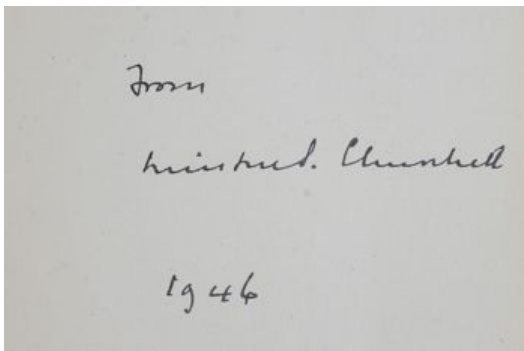 From
Winston S. Churchill
1946